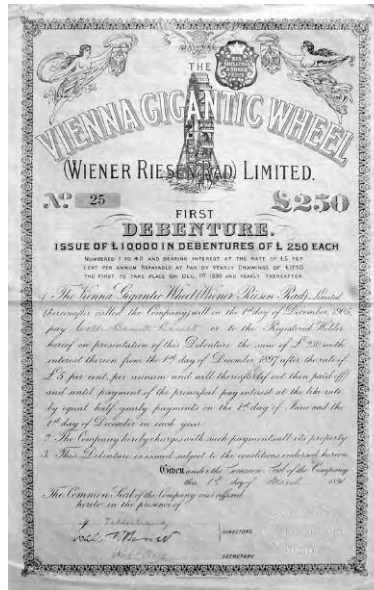 SIX
SHILLINGS
& THREE
PENCE
THE
VIENNA GIGANTIC WHEEL
(WIENER RIESEN RAD) LIMITED.
No. 25 £250
FIRST
DEBENTURE.
ISSUE OF £10000 IN DEBENTURES OF £ 250 EACH
NUMBERED 1 TO 40 AND BEARING INTEREST AT THE RATE OF £5 PER
CENT PER ANNUM REPAYABLE AT PAR BY YEARLY DRAWINGS OF £1250
THE FIRST TO TAKE PLACE ON DEC. 1ST 1898 AND YEARLY THEREAFTER.
1. The Vienna Gigantic Wheel (Wiener Riesen Rad), Limited
(hereafter called the Company) will on the 1st day of December 1905,
pay Walter Bassett Basset or to the Registered Holder
hereof on presentation of this Debenture the sum of £250 with
interest thereon from the 1st day of December 1897 after the rate of
£5 per cent, per annum and will thereafter (if not then paid off)
and until payment of the principal pay interest at the like rate
by equal half yearly payments on the 1st day of June and the
1st day of December in each year
2. The Company hereby charges with such payments all its property
3. This Debenture is issued subject to the conditions endorsed hereon
Given under the Common Seal of the Company
this 1st day of March 189
The Common Seal of the Company was affixed
hereto in the presence of
DIRECTORS.
SECRETARY.